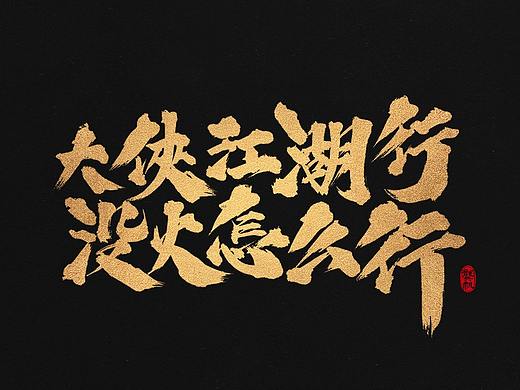 大侠江湖行
没火怎么行